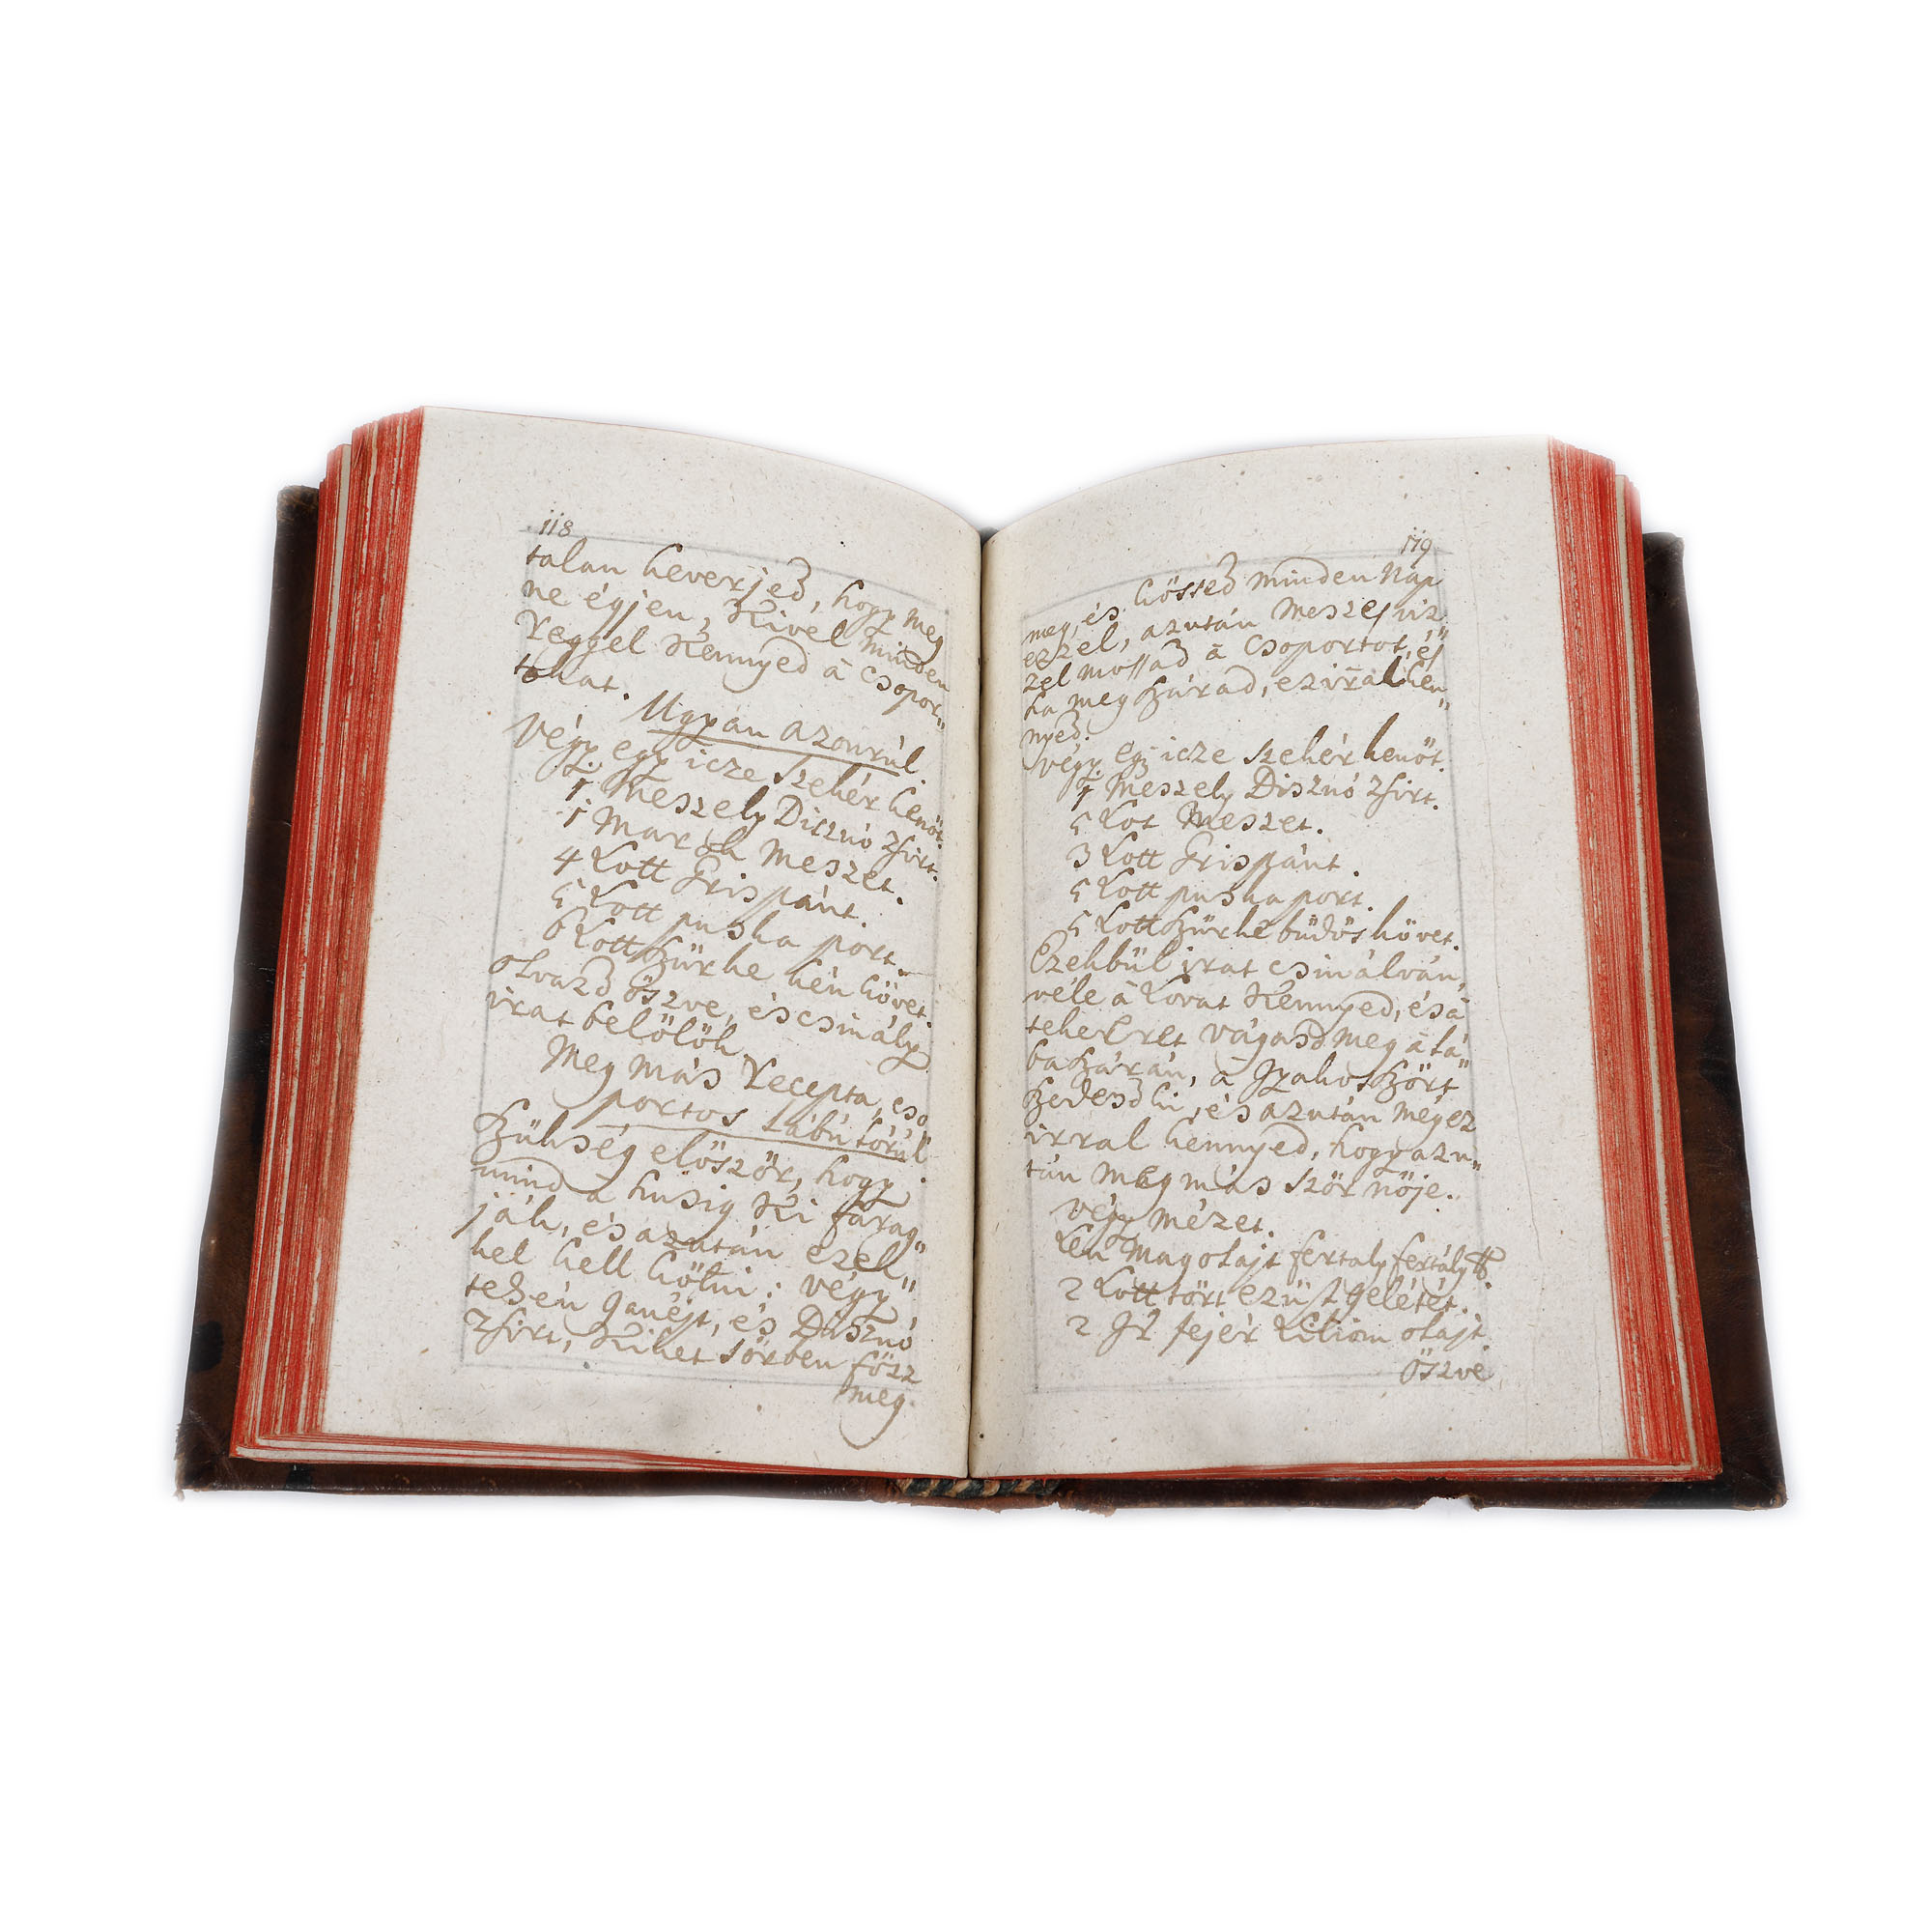 118
talan keverjed, hogy meg
ne égjen, Kivel minden
reggel Kennyed à csopor„
tokat.
Ugyan azonrúl.
Végy egy icze szekér kenőt.
1 Meszely Disznó zsirt.
1 Marok meszet.
4 Lott Grispánt.
5 Lott puska port.
6 Lott szürke kén kövét.
olvazd öszve, és csinály
irat belölök.
Meg más recepta, cso
portos Lábú lórúl.
Szükség először, hogy
mind a husig Ki farag„
ják, és azután ezel„
kel kell kötni: végy
tehén ganéjt, és Disznó
zsirt, Kiket sörben fősz
meg.
119
meg, és kössed minden Nap
ezzel, azután Meszes viz„
zel mossad à Csoportot, és
ha meg szárad, ez iral ken„
nyed.
végy egi icze szekér kenőt.
1 Meszely Disznó zsirt.
5 Lot Meszet.
3 Lott Grispánt.
5 Lott puska port.
5 Lott szürke büdös követ.
Ezekbül irat csinálván,
véle à Lovat Kennyed, és à
teke Eret vágasd meg à lá„
ba szárán, à Iyakos szört
szedesd ki, és azután meg ez
irral kennyed, hogy azu„
tán meg más ször nöje.
végy mézet.
Len mag olajt fertaly fertály ℔.
2 Lott tört ezüst gelétét.
2 fejér Liliom olajt
öszve